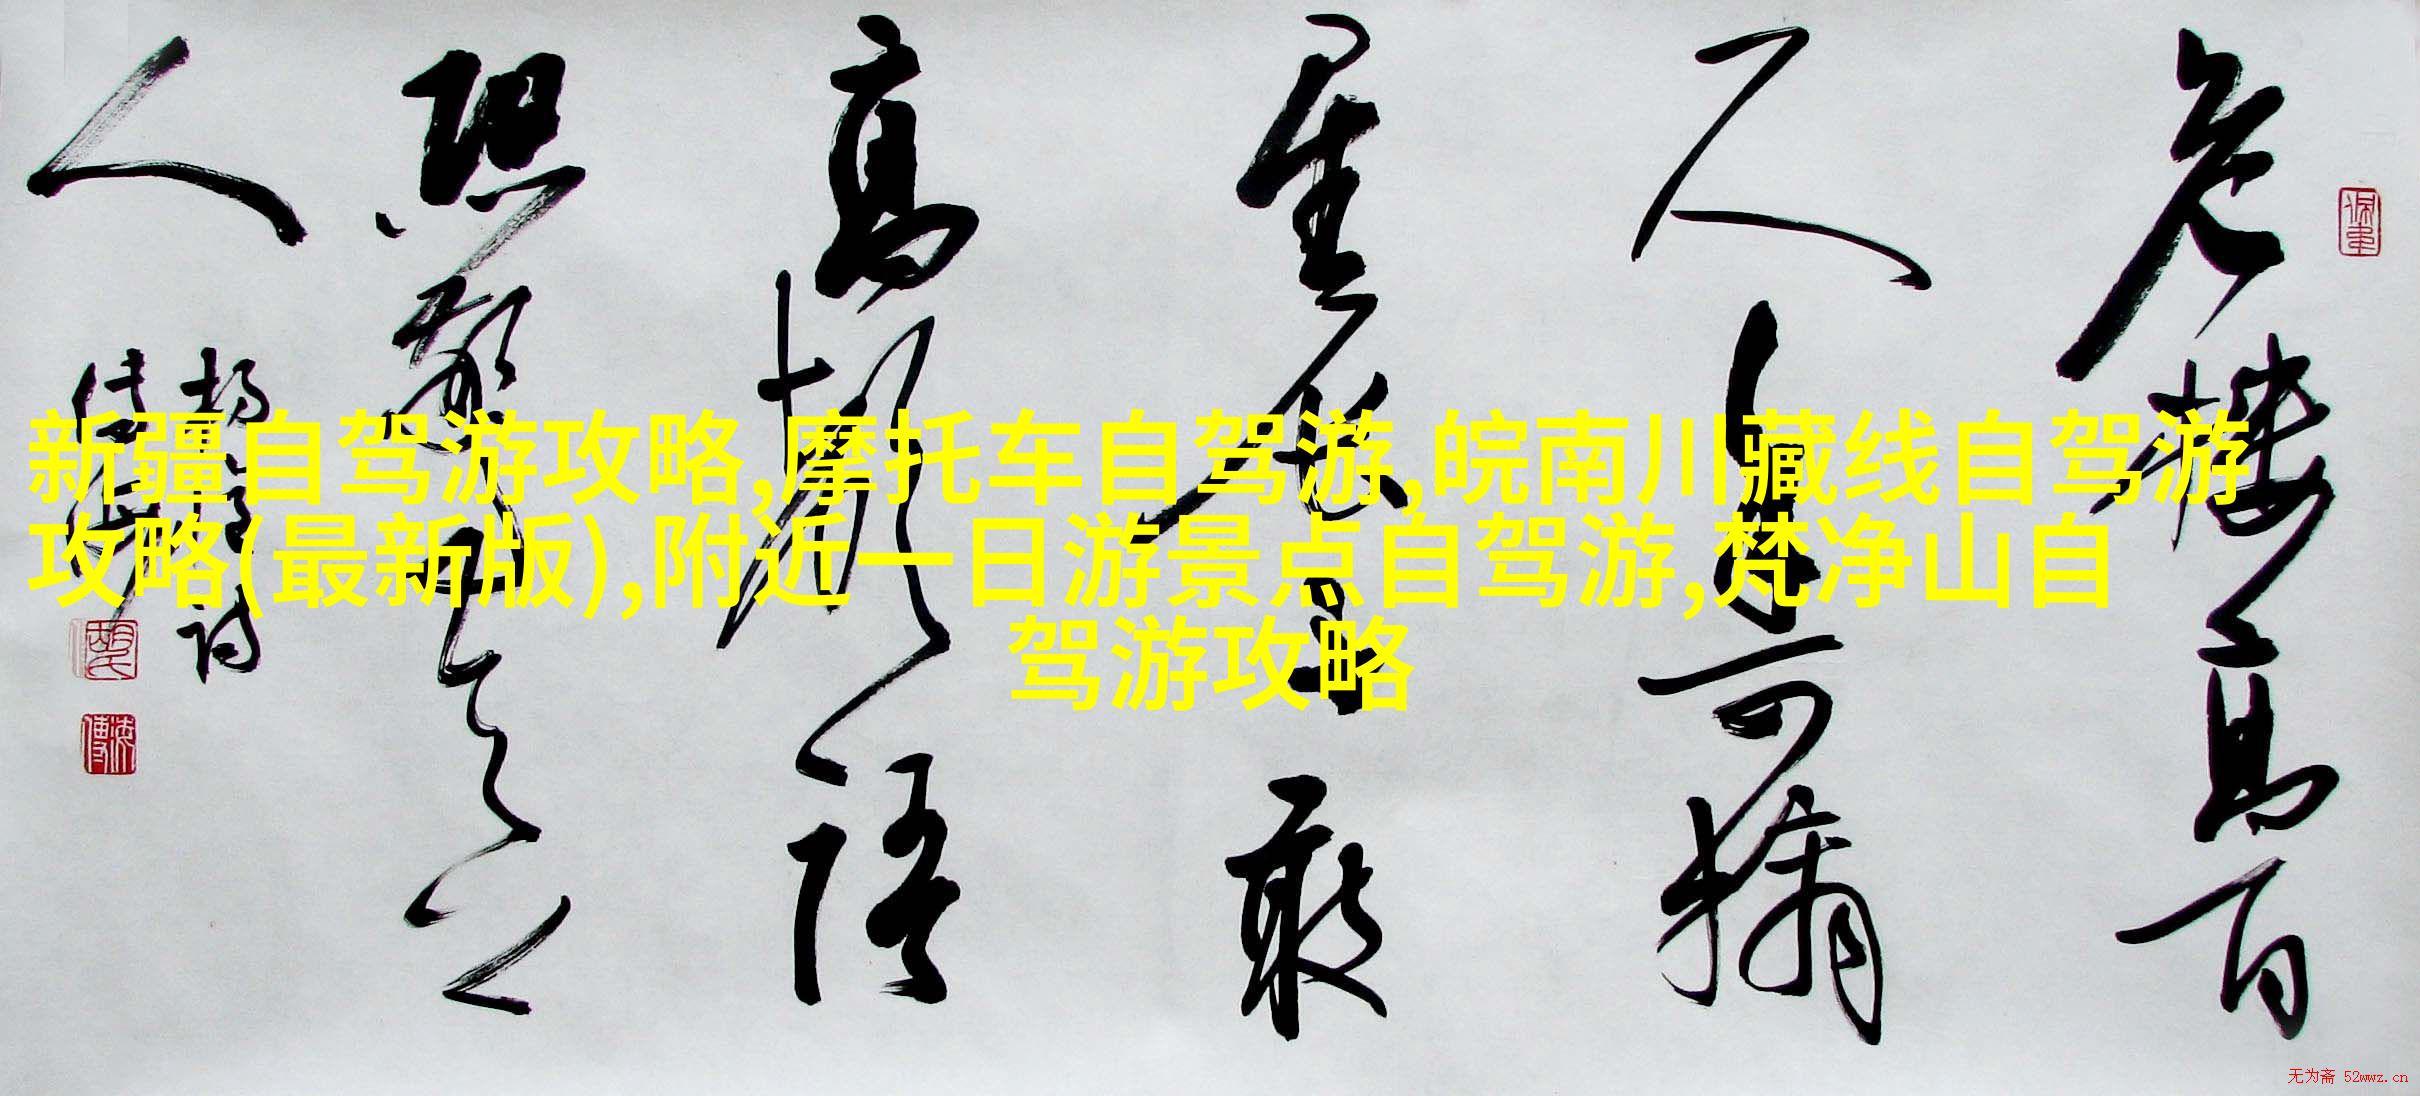 新疆自驾游攻略,摩托车自驾游,皖南川藏线自驾游
攻略(最新版),附近一日游景点自驾游,梵净山自
驾游攻略
危楼高百
尺手可摘
星辰不敢
高声语
恐惊天上
人
无为斋 52wwz.cn